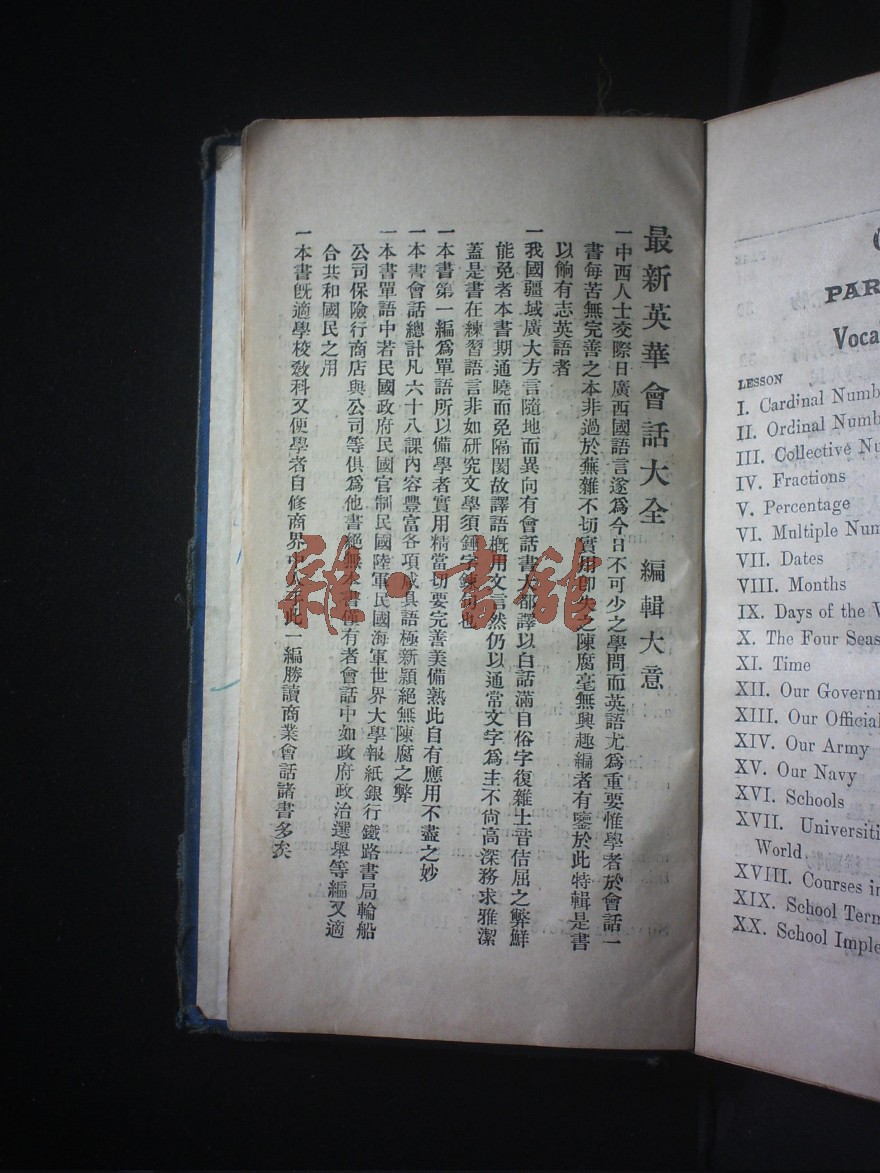 最新英華會話大全 編輯大意
一中西人士交際日廣西國語言遂爲今日不可少之學問而英語尤爲重要惟學者於會話一
書每苦無完善之本非過於蕪雜不切實用即失之陳腐毫無興趣編者有鑒於此特輯是書
以餉有志英語者
一我國疆域廣大方言隨地而異向有會話書大都譯以白話滿目俗字復雜土音佶屈之弊鮮
能免者本書期通曉而免隔閡故譯語概用文言然仍以通常文字爲主不尙高深務求雅潔
蓋是書在練習語言非如研究文學須錘字鍊句也
一本書第一編爲單語所以備學者實用精當切要完善美備熟此自有應用不盡之妙
一本書會話總計凡六十八課內容豐富各項咸具語極新穎絕無陳腐之弊
一本書單語中若民國政府民國官制民國陸軍民國海軍世界大學報紙銀行鐵路書局輪船
公司保險行商店與公司等俱爲他書絕無本書僅有者會話中如政府政治選舉等編又適
合共和國民之用
一本書旣適學校敎科又便學者自修商界中人手此一編勝讀商業會話諸書多矣
雜·書館
PAR
Voca
LESSON
I. Cardinal Numb
II. Ordinal Numb
III. Collective Nu
IV. Fractions
V. Percentage
VI. Multiple Num
VII. Dates
VIII. Months
IX. Days of the W
X. The Four Seas
XI. Time
XII. Our Govern
XIII. Our Official
XIV. Our Army
XV. Our Navy
XVI. Schools
XVII. Universiti
World.
XVIII. Courses in
XIX. School Term
XX. School Imple